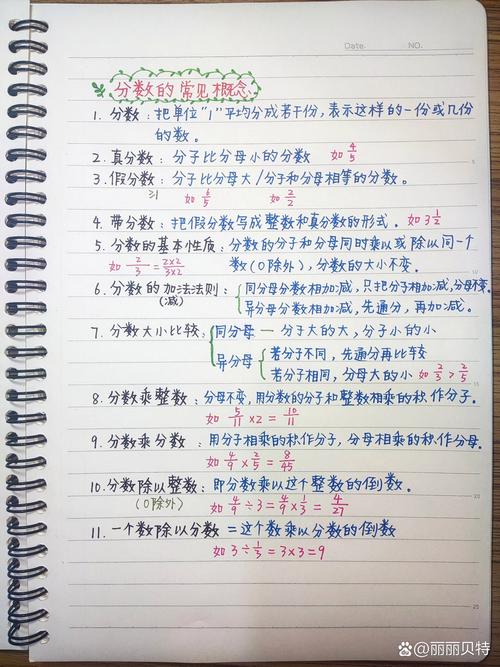 Date. NO.
分数的常见概念
1. 分数：把单位“1”平均分成若干份，表示这样的一份或几份
的数。
2. 真分数：分子比分母小的分数 如 4/5
3. 假分数：分子比分母大/分子和分母相等的分数。
如 6/5 如 2/2
4. 带分数：把假分数写成整数和真分数的形式。如 3 1/2
5. 分数的基本性质：分数的分子和分母同时乘以或除以同一个
如 2/3 = 2×2/3×2 数（0除外），分数的大小不变。
6. 分数的加法法则：同分母分数相加减，只把分子相加减，分母不变。
（减） 异分母分数相加减，先通分，再加减。
7. 分数大小比较：同分母 — 分子大的大，分子小的小
异分母 若分子不同，先通分再比较
若分子相同，分母大的小 如 2/3 > 2/5
8. 分数乘整数：分母不变，用分数的分子和整数相乘的积作分子.
如 5/11 × 2 = 10/11
9. 分数乘分数：用分子相乘的积作分子，分母相乘的积作分母.
如 4/9 × 2/5 = 8/45
10. 分数除以整数：即分数乘以这个整数的倒数。
（0除外） 如 4/9 ÷ 3 = 4/9 × 1/3 = 4/27
11. 一个数除以分数 = 这个数乘以分数的倒数
如 3 ÷ 1/3 = 3 × 3 = 9
5
10
15
20
25
百家号/丽丽贝特